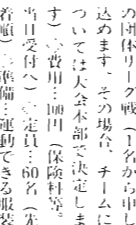 の団体リーグ戦（１名から申し
込めます。その場合、チームに
ついては大会本部で決定しま
す）◇費用…100円（保険料等。
当日受付へ）◇定員…60名（先
着順）◇準備…運動できる服装